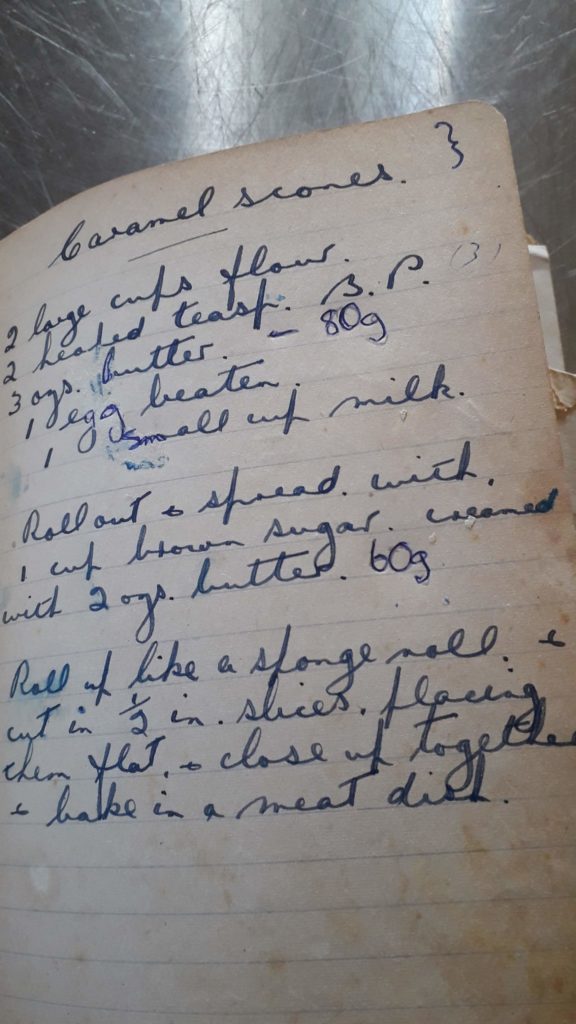 Caramel scones. }
2 large cups flour.
2 heaped teasp. B. P. (3)
3 ozs. butter. - 80g
1 egg beaten.
1 small cup milk.
Roll out & spread. with.
1 cup brown sugar. creamed
with 2 ozs. butter. 60g
Roll up like a sponge roll. &
cut in 1/2 in. slices. placing
them flat, & close up together
& bake in a meat dish.